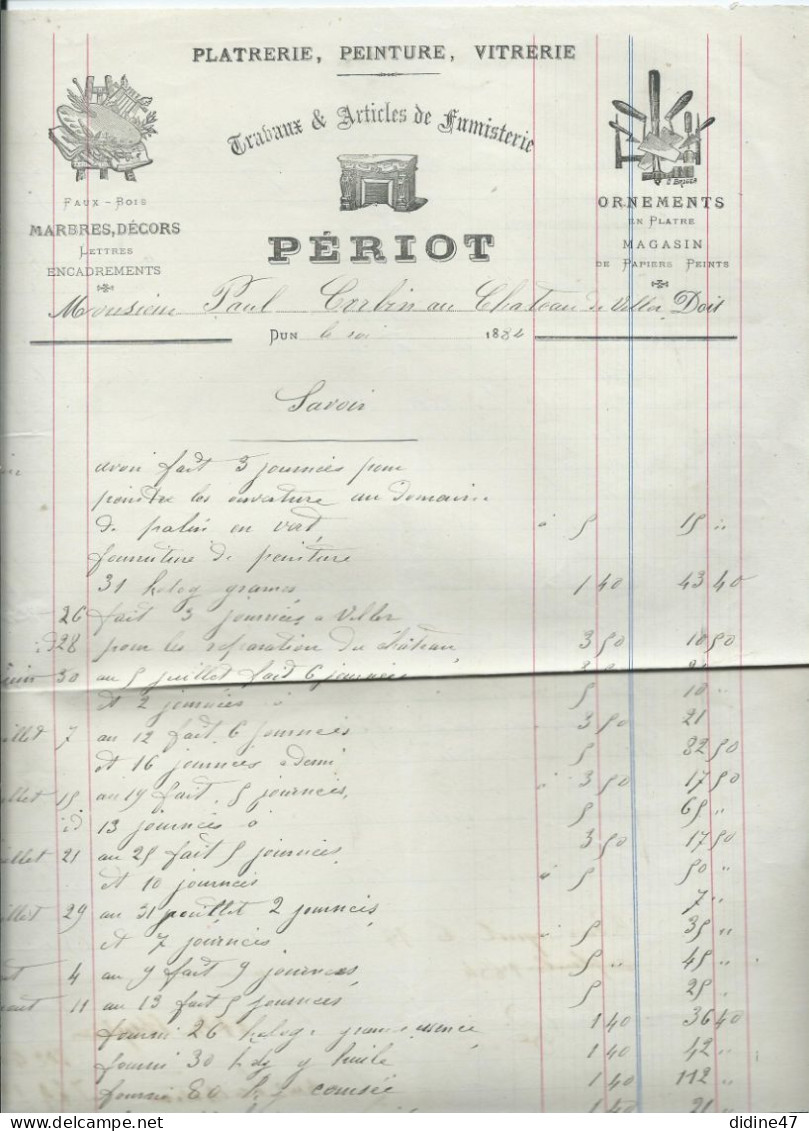 PLATRERIE, PEINTURE, VITRERIE
Travaux & Articles de Fumisterie
FAUX-BOIS
MARBRES, DÉCORS
LETTRES
ENCADREMENTS
PÉRIOT
ORNEMENTS
EN PLATRE
MAGASIN
DE PAPIERS PEINTS
Monsieur Paul Corbin au Chateau de Villor Doit
DUN le roi 1884
Savoir
avoir fait 3 journeés pour
peindre les ouverture au domaine
de palin en vert à 5 15 "
fourniture de peinture
31 kelog grames 1 40 43 40
26 fait 3 journeés a Villor
id 28 pour les réparation du château 3 50 10 50
juin 30 au 5 juillet fait 6 journeés 3 50 21
et 2 journeés à 5 10 "
juillet 7 au 12 fait 6 journeés 3 50 21
et 16 journeés et demi 5 82 50
juillet 15 au 19 fait 5 journeés, à 3 50 17 50
id 13 journeés à 5 65 "
juillet 21 au 25 fait 5 journeés, 3 50 17 50
et 10 journeés à 5 50 "
juillet 29 au 31 juillet 2 journeés, 7 "
et 7 journeés à 5 35 "
4 au 9 fait 9 journeés 5 45 "
11 au 13 fait 5 journeés 5 25 "
fourni 26 kelog grames 1 40 36 40
fourni 30 klg g huile 1 40 42 "
fourni 80 k g 1 40 112 "
1 40 21 "
didine47